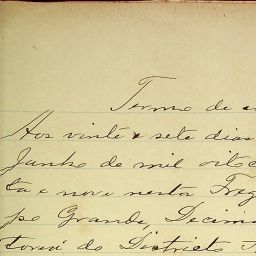 Termo de a
Aos vinte e sete dias
Junho de mil oitoc
ta e nove nesta Freg
po Grande, Decim
toral do Districto